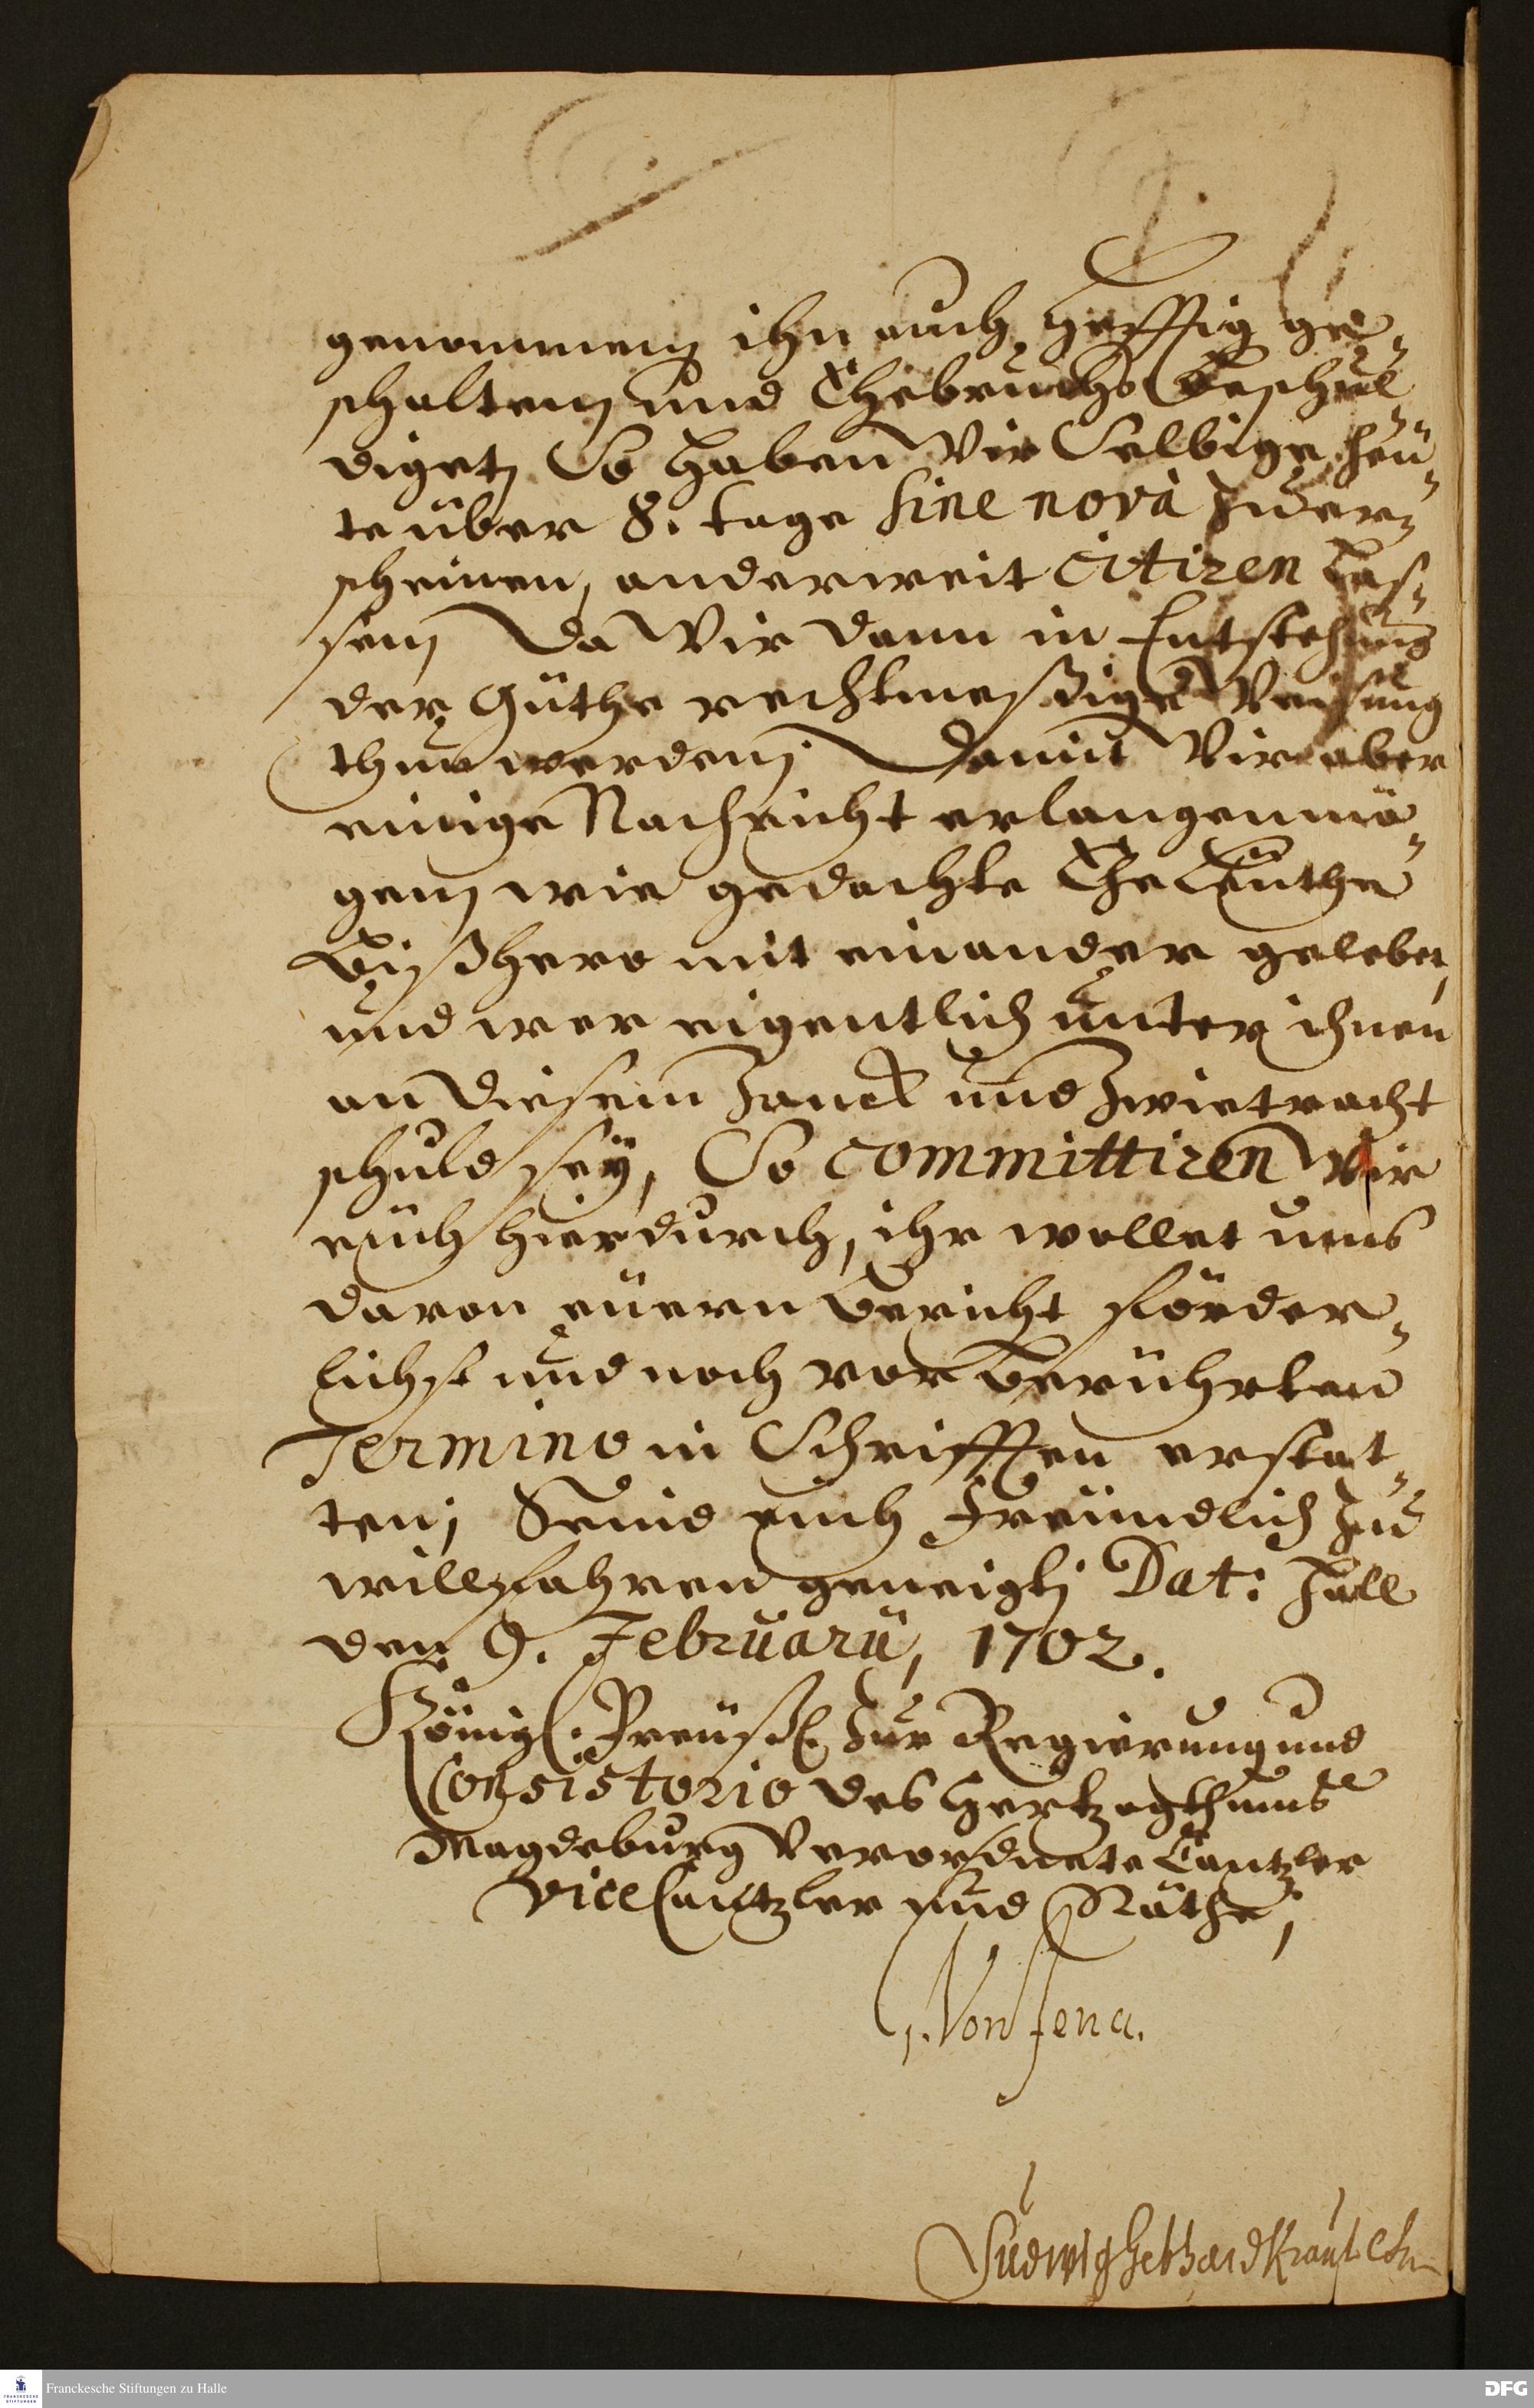 genommen, ihn auch hefftig ge-
scholten, und Ehebruchs beschul
diget, So haben Wir Selbige heü-
te über 8. tage sine nova zu er-
scheinen, anderweit citiren las-
sen, Da Wir dann in Entstehung
der Güthe rechtmeßige Weisung
thun werden; Damit Wir aber
einige Nachricht erlangen mö-
gen, wie gedachte Eheleuthe
bißhero mit einander gelebet,
und wer eigentlich unter ihnen
an diesem Zanck und Zwietracht
schuld sey, So committiren Wir
euch hierdurch, ihr wollet uns
davon euern bericht förder-
lichst und noch vor berührten
Termino in Schrifften erstat-
ten; Seind euch freundlich zu
willfahren geneigt; Dat: Hall
den 9. Februarii, 1702.
Königl. Preüßl. Zur Regierung und
Consistorio des Hertzogthums
Magdeburg Verordnete Cantzler
ViceCantzler und Räthe,
G. Von Jena.
Ludwig Gebhard Kraut
Franckesche Stiftungen zu Halle
DFG